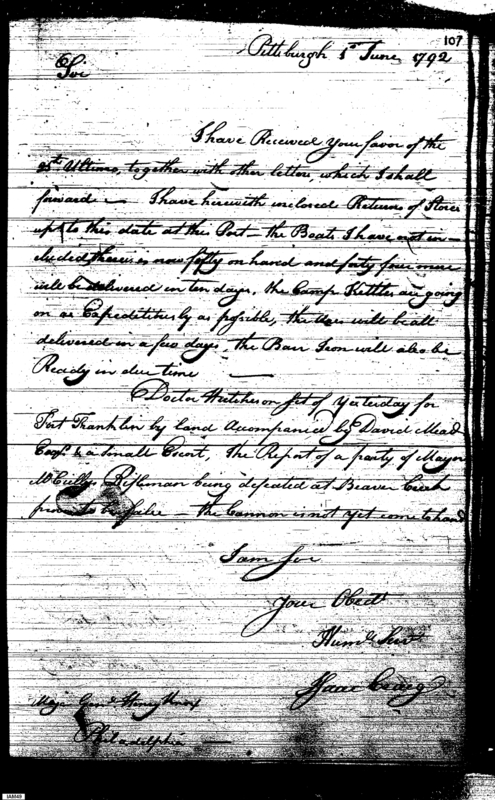 107
Pittsburgh 1st June 1792
Sir
I have Received your favor of the
25th Ultimo, together with other letters, which I shall
forward — I have herewith inclosed Returns of Stores
up to this date at this Post — the Boats I have not in-
cluded there is now fifty on hand and forty four more
will be delivered in ten days, the Camp Kettles are going
on as Expeditiously as possible, the Axes will be all
delivered in a few days the Barr Iron will also be
Ready in due time —
Doctor Hutcheson set of yesterday for
Fort Franklin by land Acompanied by David Mead
Esqr. & a Small Escort, the Report of a party of Mayor
McCullys Rifleman being defeated at Beaver Creek
proves to be false — the Cannon is not yet come to hand
I am Sir
your Obedt
Humle Servt
Isaac Craig
Major Genl Henry Knox
Philadelphia —
IAM49